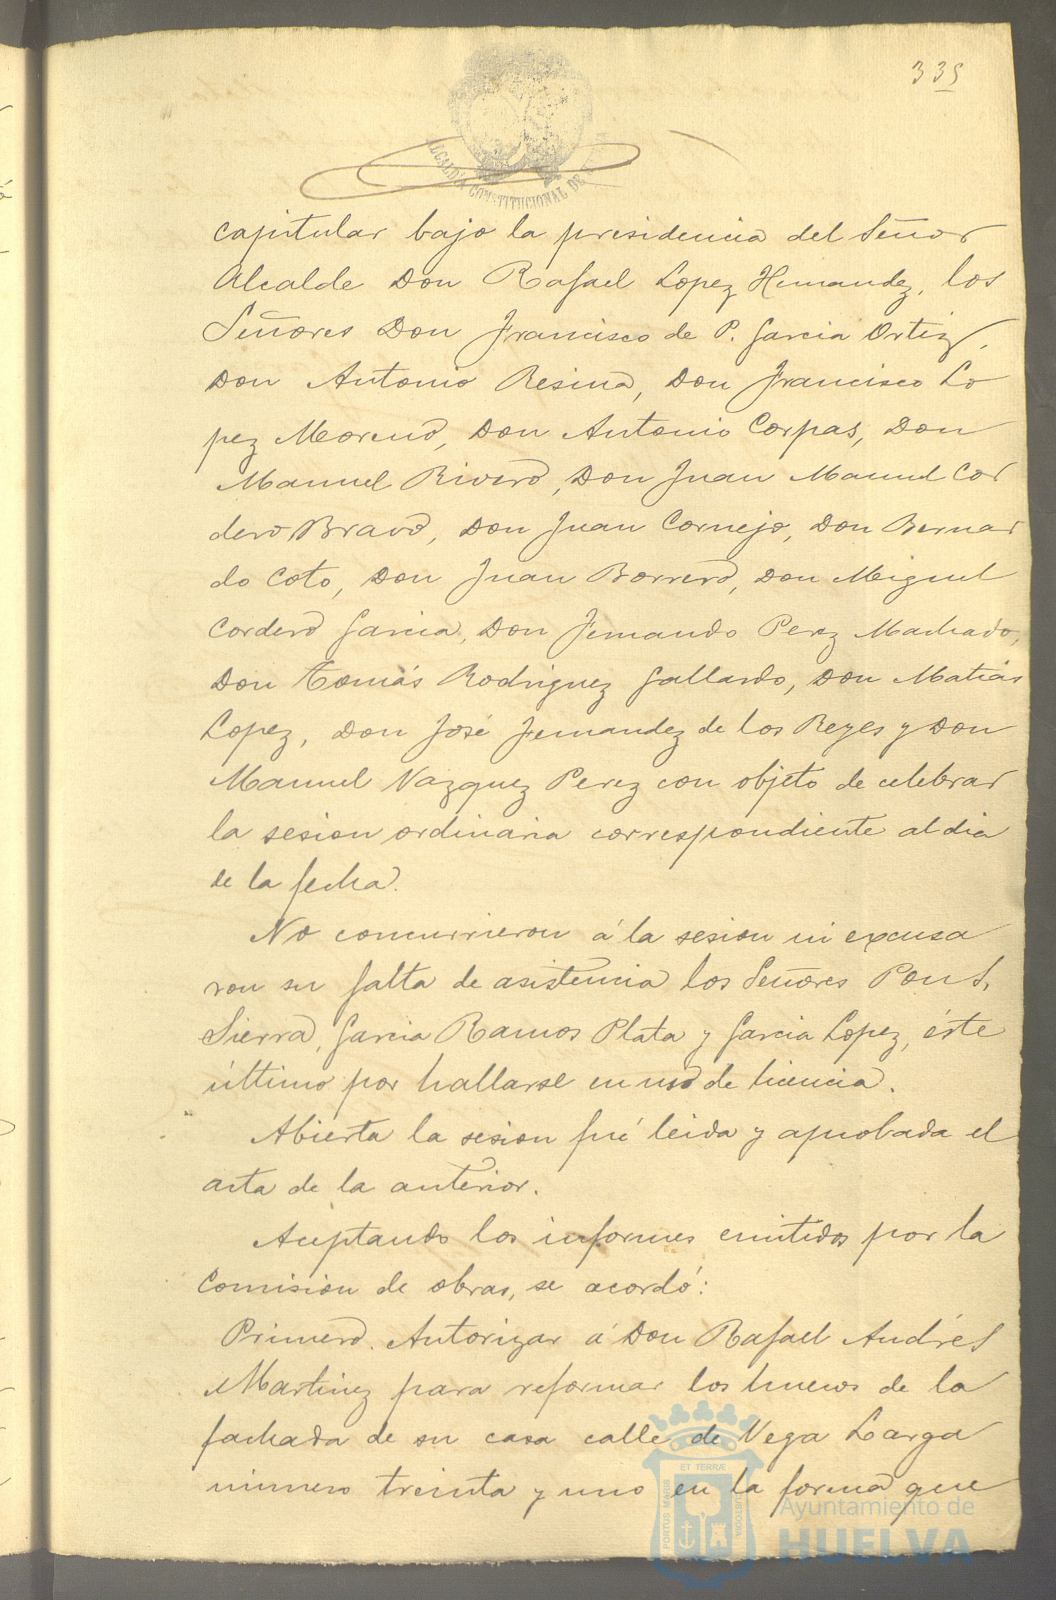 335
ALCALDÍA CONSTITUCIONAL DE
capitular bajo la presidencia del Señor
Alcalde Don Rafael Lopez Hernandez, los
Señores Don Francisco de P. Garcia Ortiz,
Don Antonio Resina, Don Francisco Lo
pez Moreno, Don Antonio Corpas, Don
Manuel Rivero, Don Juan Manuel Cor
dero Bravo, Don Juan Cornejo, Don Bernar
do Coto, Don Juan Borrero, Don Miguel
Cordero Garcia, Don Fernando Perez Machado,
Don Tomás Rodriguez Gallardo, Don Matias
Lopez, Don José Fernandez de los Reyes y Don
Manuel Vazquez Perez con objeto de celebrar
la sesion ordinaria correspondiente al dia
de la fecha.
No concurrieron á la sesion ni excusa
ron su falta de asistencia los Señores Pons,
Sierra, Garcia Ramos Plata y Garcia Lopez, éste
último por hallarse en uso de licencia.
Abierta la sesion fué leida y aprobada el
acta de la anterior.
Aceptando los informes emitidos por la
Comision de obras, se acordó:
Primero. Autorizar á Don Rafael Andrés
Martinez para reformar los huecos de la
fachada de su casa calle de Vega Larga
número treinta y uno en la forma que
PORTUS MARIS ET TERRÆ CUSTODIA
Ayuntamiento de
HUELVA